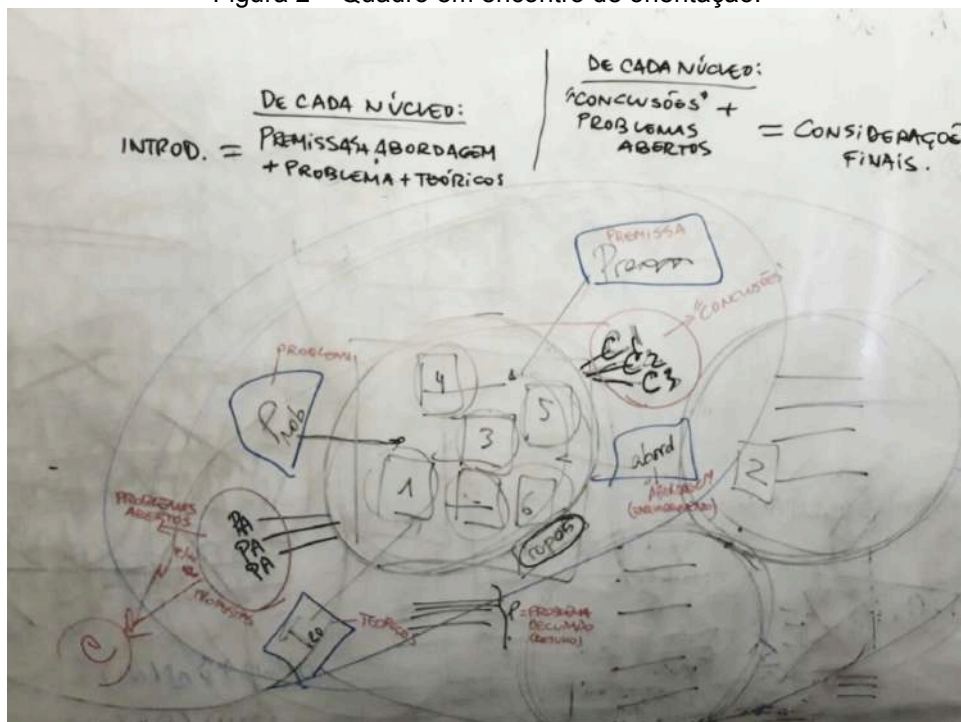 Figura 2 – Quadro em encontro de orientação.
DE CADA NÚCLEO:
INTROD. = PREMISSAS, ABORDAGEM
+ PROBLEMA + TEÓRICOS
DE CADA NÚCLEO:
"CONCLUSÕES" +
PROBLEMAS
ABERTOS
= CONSIDERAÇÕE
FINAIS.
PREMISSA
"CONCLUSÕES"
C1
C2
C3
PROBLEMA
Prob
4
5
3
1
6
2
abord
ABORDAGEM
PROBLEMAS
ABERTOS
PA
PA
PA
PROPOSTAS
C
Teo
TEÓRICOS
P = PROBLEMA